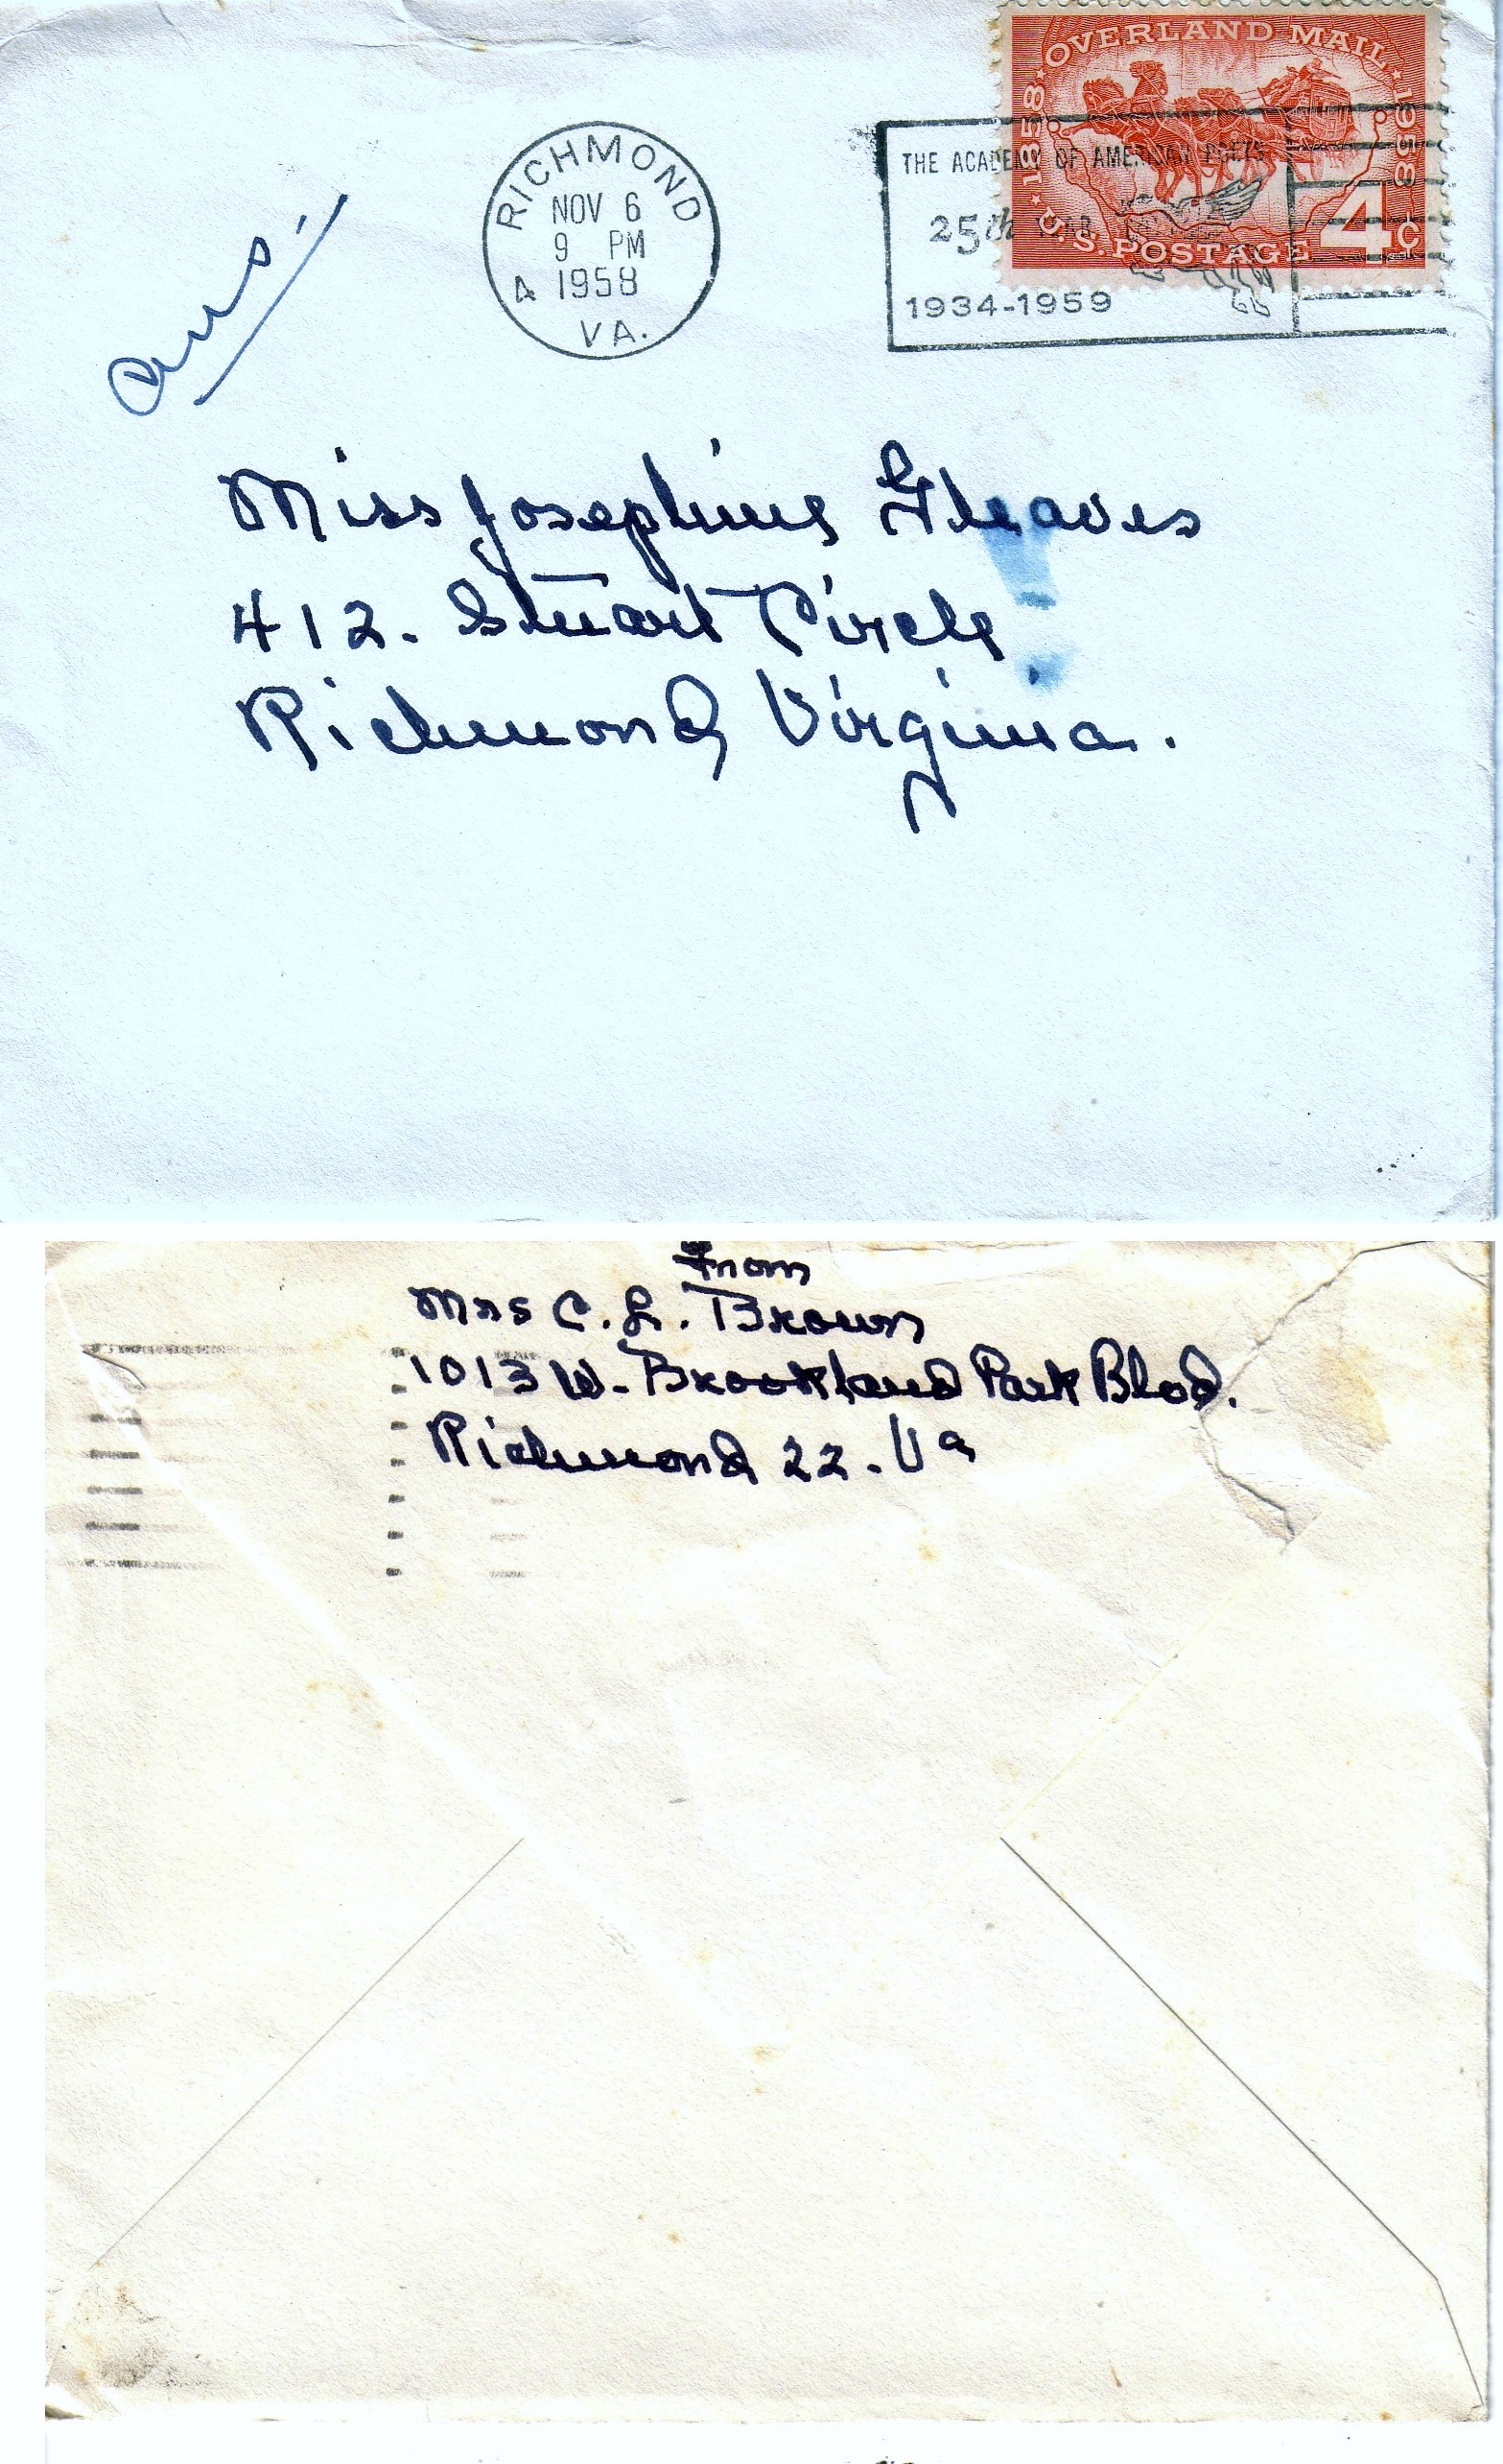 OVERLAND MAIL
1858
1958
U.S. POSTAGE
4¢
RICHMOND
NOV 6
9 PM
4 1958
VA.
THE ACADEMY OF AMERICAN POETS
25th YEAR
1934-1959
ans.
Miss Josephine Gleaves
412. Stuart Circle
Richmond Virginia.
From
Mrs C. L. Brown
1013 W. Brookland Park Blvd.
Richmond 22. Va